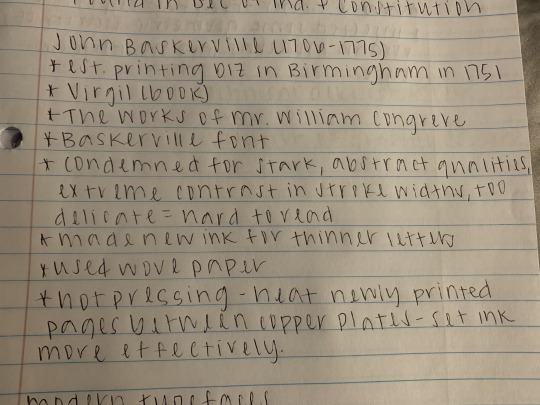 found in Dec of Ind. + Constitution
John Baskerville (1706-1775)
* est. printing biz in Birmingham in 1751
* Virgil (book)
* The works of Mr. William Congreve
* Baskerville font
* condemned for stark, abstract qualities,
extreme contrast in stroke widths, too
delicate = hard to read
* made new ink for thinner letters
* used wove paper
* hot pressing - heat newly printed
pages between copper plates - set ink
more effectively.
modern typefaces